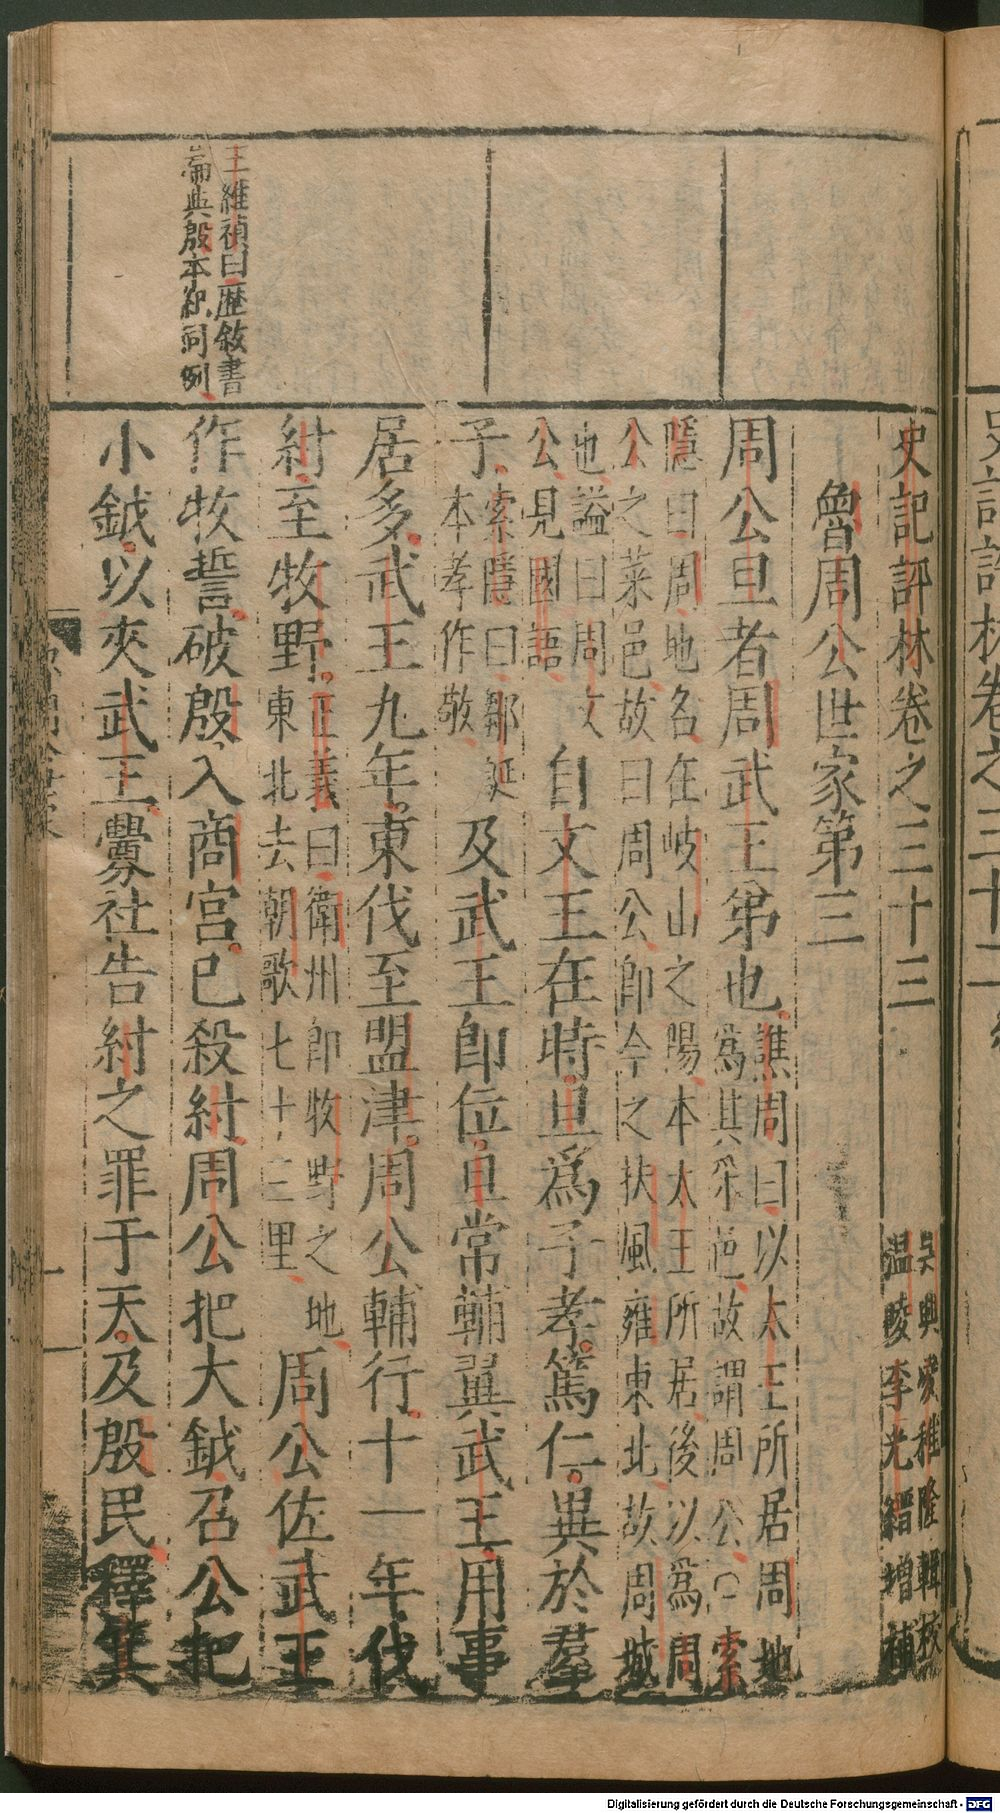 史記評林卷之三十三
吳興凌稚隆輯校
溫陵李光縉增補
魯周公世家第三
周公旦者周武王弟也
譙周曰以太王所居周地
爲其采邑故謂周公○索
隱曰周地名在岐山之陽本太王所居後以爲周
公之菜邑故曰周公卽今之扶風雍東北故周城
也謚曰周文
公見國語
自文王在時旦爲子孝篤仁異於羣
子
索隱曰鄒誕
本孝作敬
及武王卽位旦常輔翼武王用事
居多武王九年東伐至盟津周公輔行十一年伐
紂至牧野
正義曰衛州卽牧野之地
東北去朝歌七十三里
周公佐武王
作牧誓破殷入商宮已殺紂周公把大鉞召公把
小鉞以夾武王釁社告紂之罪于天及殷民釋箕
王維禎曰歷敘書
篇與殷本紀同例
一
Digitalisierung gefördert durch die Deutsche Forschungsgemeinschaft - DFG